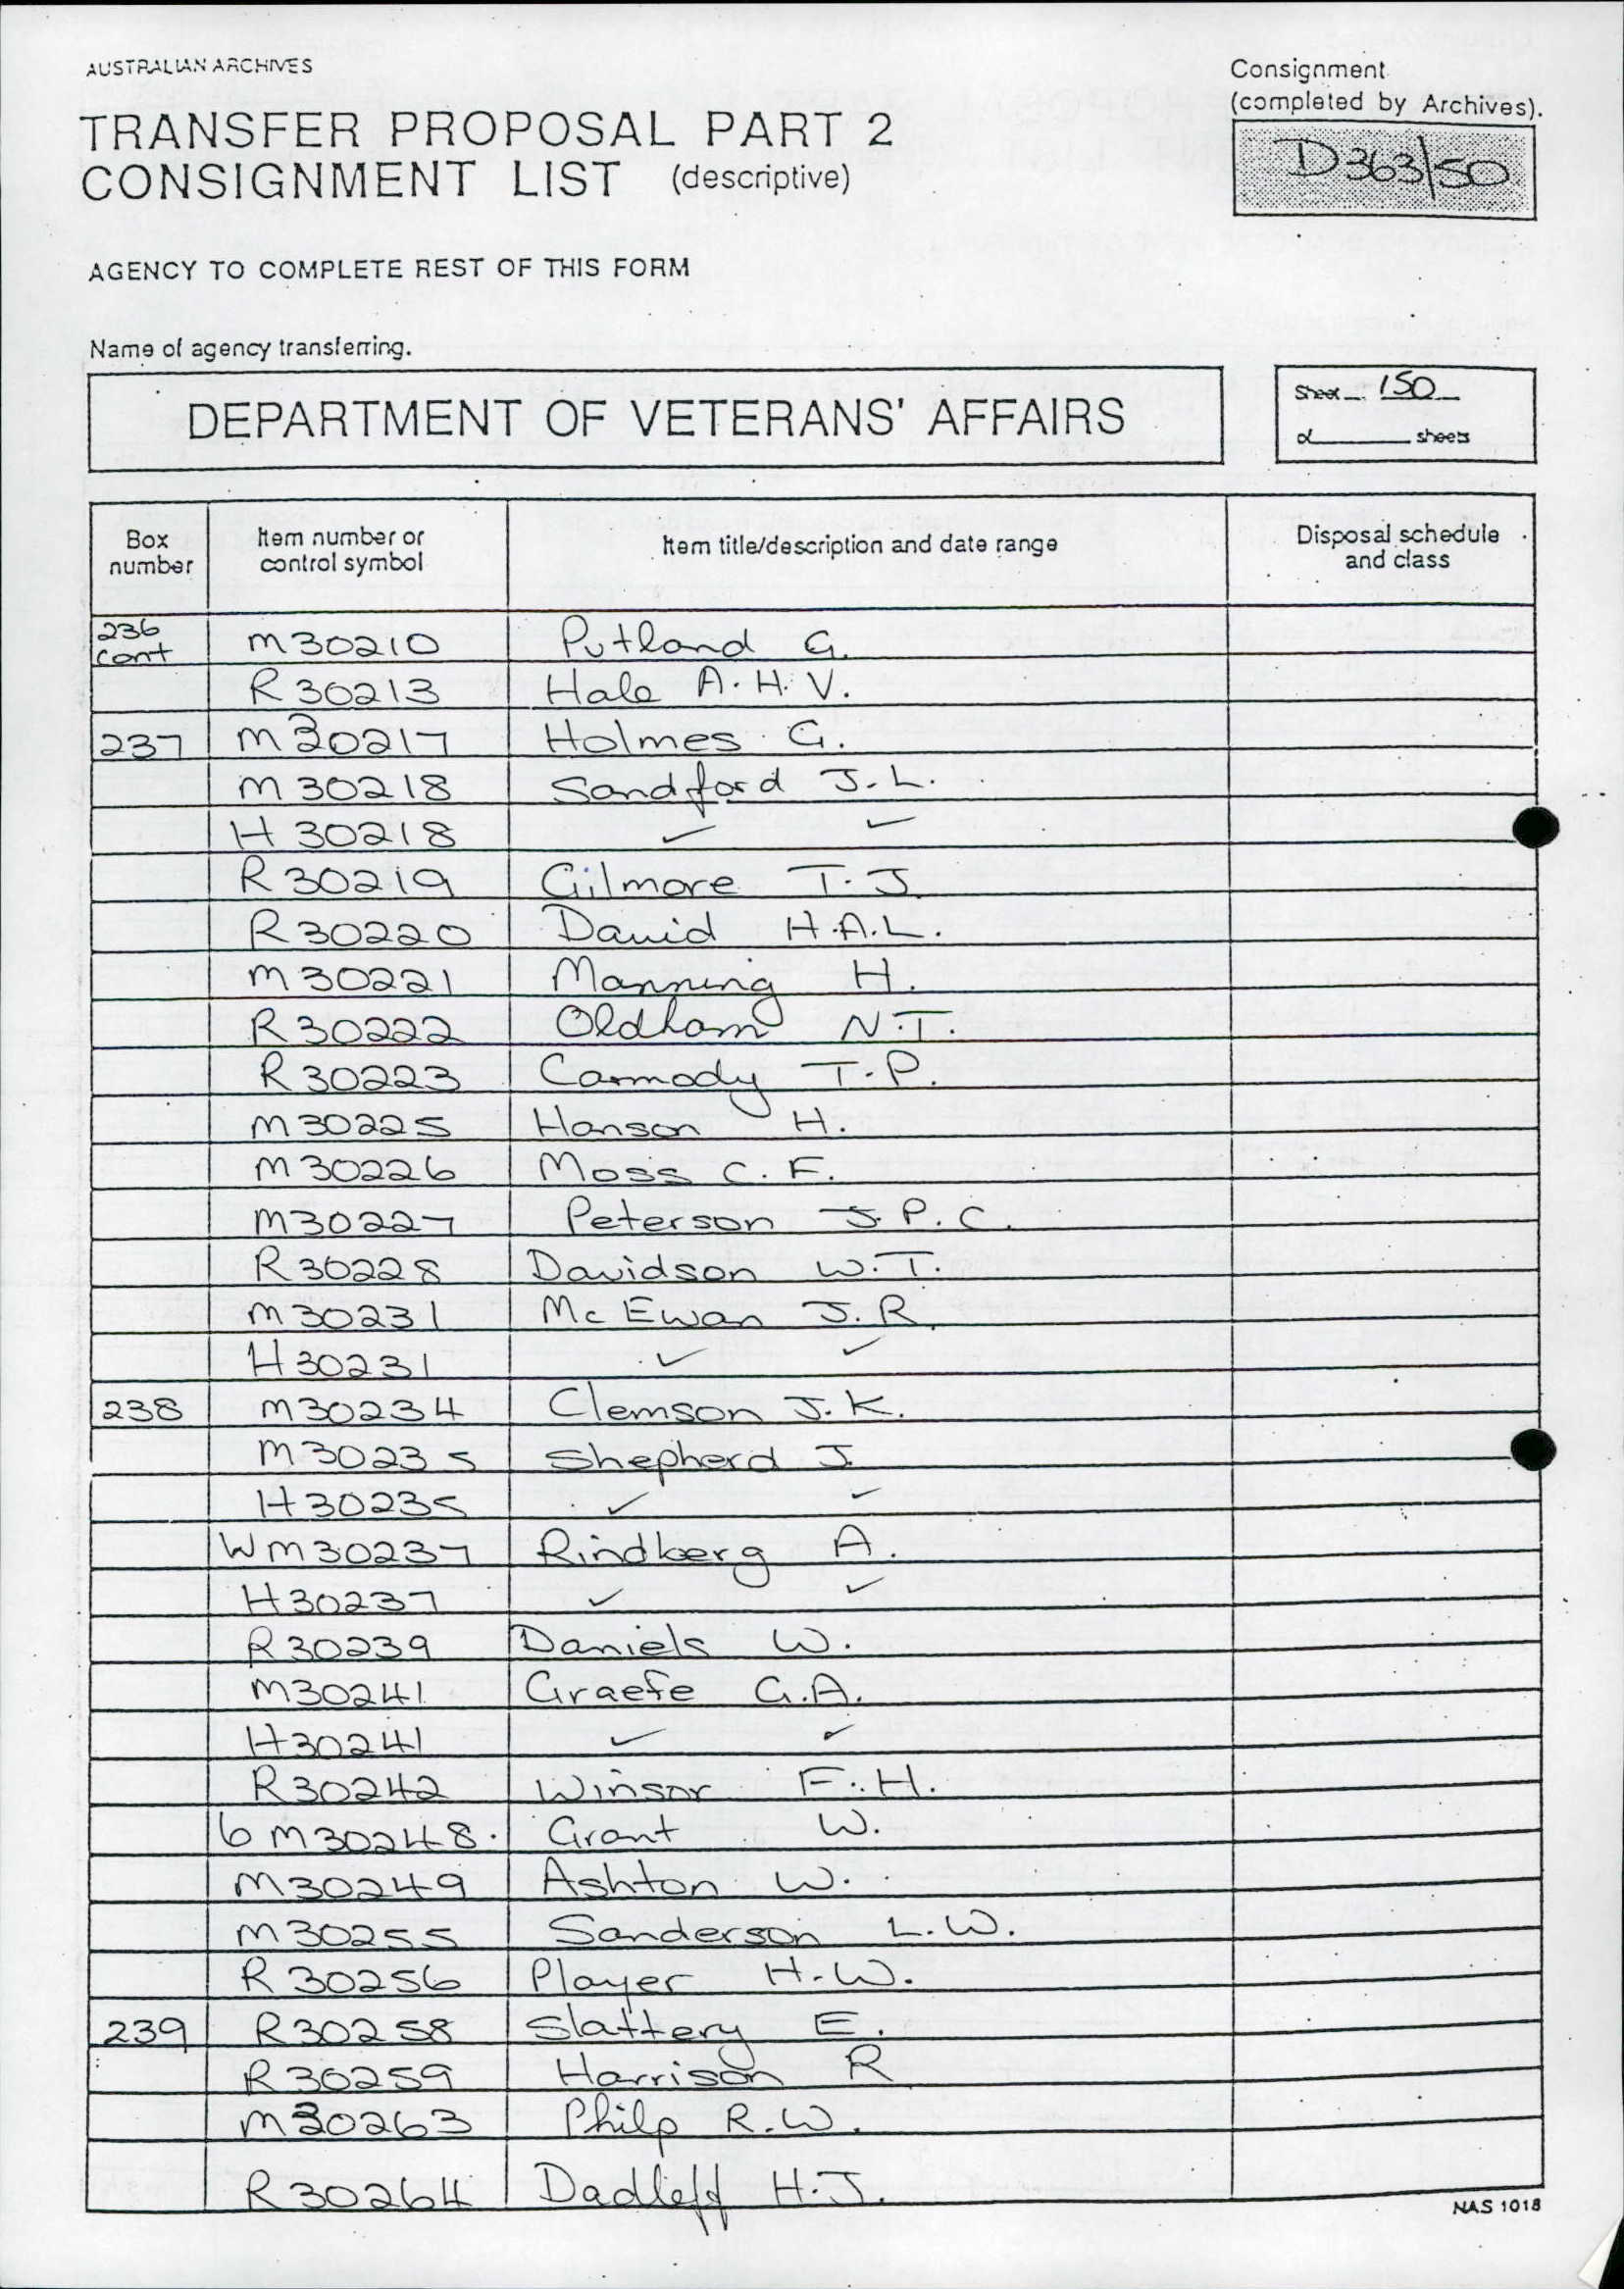 AUSTRALIAN ARCHIVES
TRANSFER PROPOSAL PART 2
CONSIGNMENT LIST (descriptive)
Consignment
(completed by Archives).
D363/50
AGENCY TO COMPLETE REST OF THIS FORM
Name of agency transferring.
DEPARTMENT OF VETERANS' AFFAIRS
Sheet 150
of sheets
Box number Item number or control symbol Item title/description and date range Disposal schedule and class
236 cont M30210 Putland G.
R30213 Hale A.H.V.
237 M30217 Holmes G.
M30218 Sandford J.L.
H30218 ✓ ✓
R30219 Gilmore T.J.
R30220 David H.A.L.
M30221 Manning H.
R30222 Oldham N.T.
R30223 Carmody T.P.
M30225 Hanson H.
M30226 Moss C.F.
M30227 Peterson J.P.C.
R30228 Davidson W.T.
M30231 McEwan J.R.
H30231 ✓ ✓
238 M30234 Clemson J.K.
M30235 Shepherd J.
H30235 ✓ ✓
WM30237 Rindberg A.
H30237 ✓ ✓
R30239 Daniels W.
M30241 Graefe G.A.
H30241 ✓ ✓
R30242 Winsor F.H.
6M30248. Grant W.
M30249 Ashton W.
M30255 Sanderson L.W.
R30256 Player H.W.
239 R30258 Slattery E.
R30259 Harrison R
M30263 Philp R.W.
R30264 Dadleff H.J.
NAS 1018